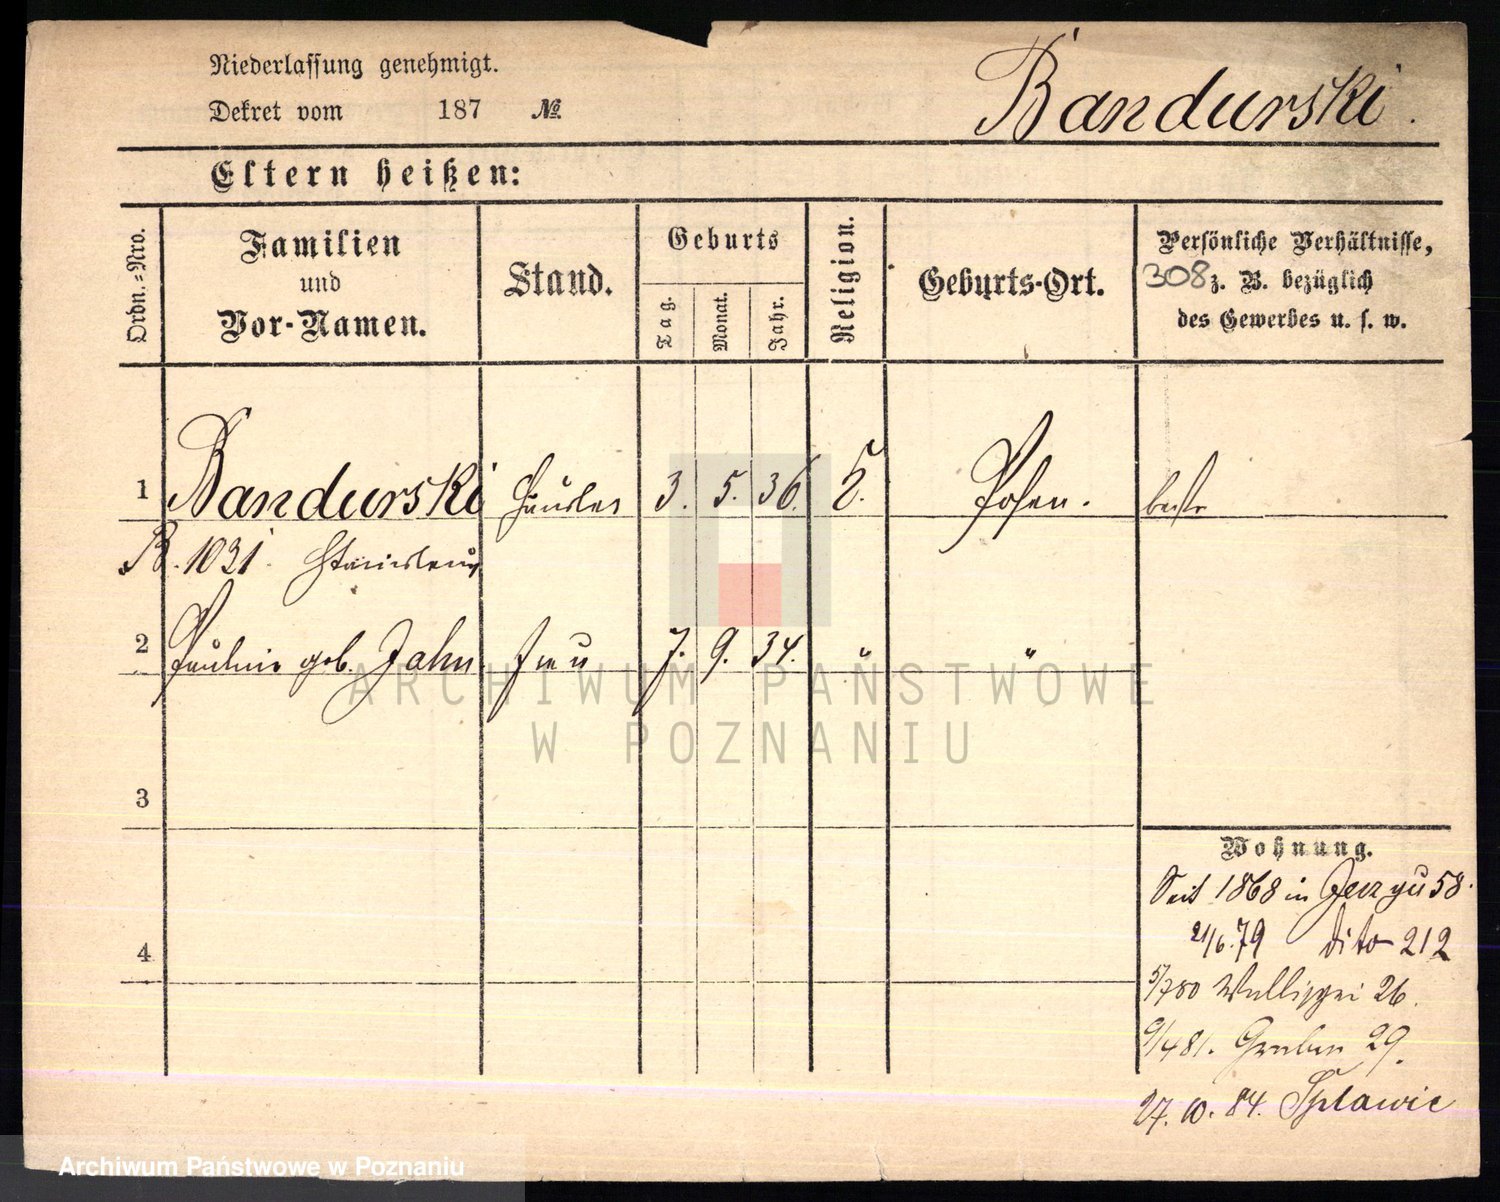 Niederlassung genehmigt.
Dekret vom 187 №
Bandurski.
Eltern heißen:
Ordn.-Nro.
Familien
und
Vor-Namen.
Stand.
Geburts
Tag.
Monat.
Jahr.
Religion.
Geburts-Ort.
Persönliche Verhältnisse,
308 z. B. bezüglich
des Gewerbes u. s. w.
1 Bandurski Häusler 3. 5. 36. Posen.
B. 1031. Stanislaus
2 Pauline geb. Jahn Frau 7. 9. 34. " "
3
4
Wohnung.
Seit 1868 in Jerzyu 58.
21/6.79 dito 212
5/7 80 Wallischei 26.
9/4 81. Graben 29.
27. 10. 84. Splawie
ARCHIWUM PAŃSTWOWE
W POZNANIU
Archiwum Państwowe w Poznaniu